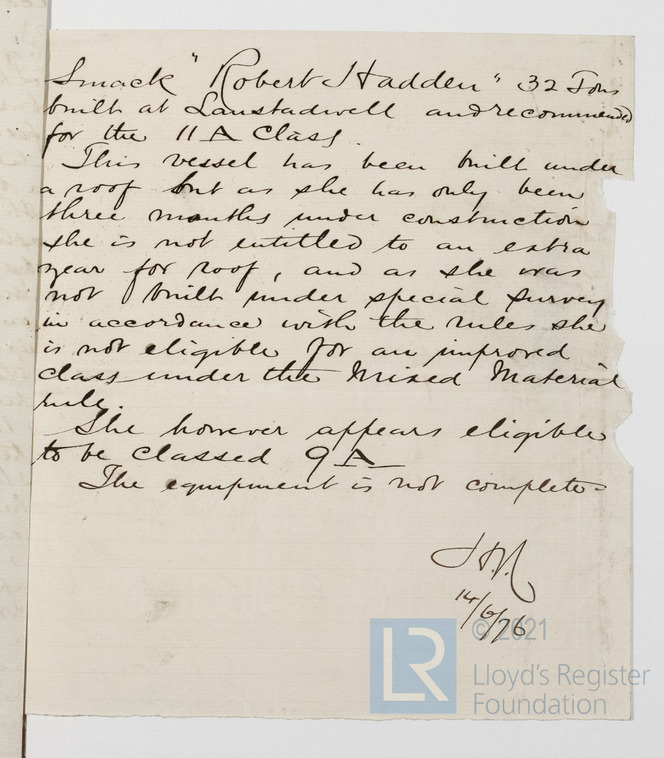 Smack "Robert Hadden" 32 Tons
built at Lanstadwell and recommended
for the 11 A Class.
This vessel has been built under
a roof but as she has only been
three months under construction
she is not entitled to an extra
year for roof, and as she was
not built under special survey
in accordance with the rules she
is not eligible for an improved
class under the Mixed Material
rule.
She however appears eligible
to be classed 9 A
The equipment is not complete
14/6/76
© 2021
LR
Lloyd's Register
Foundation